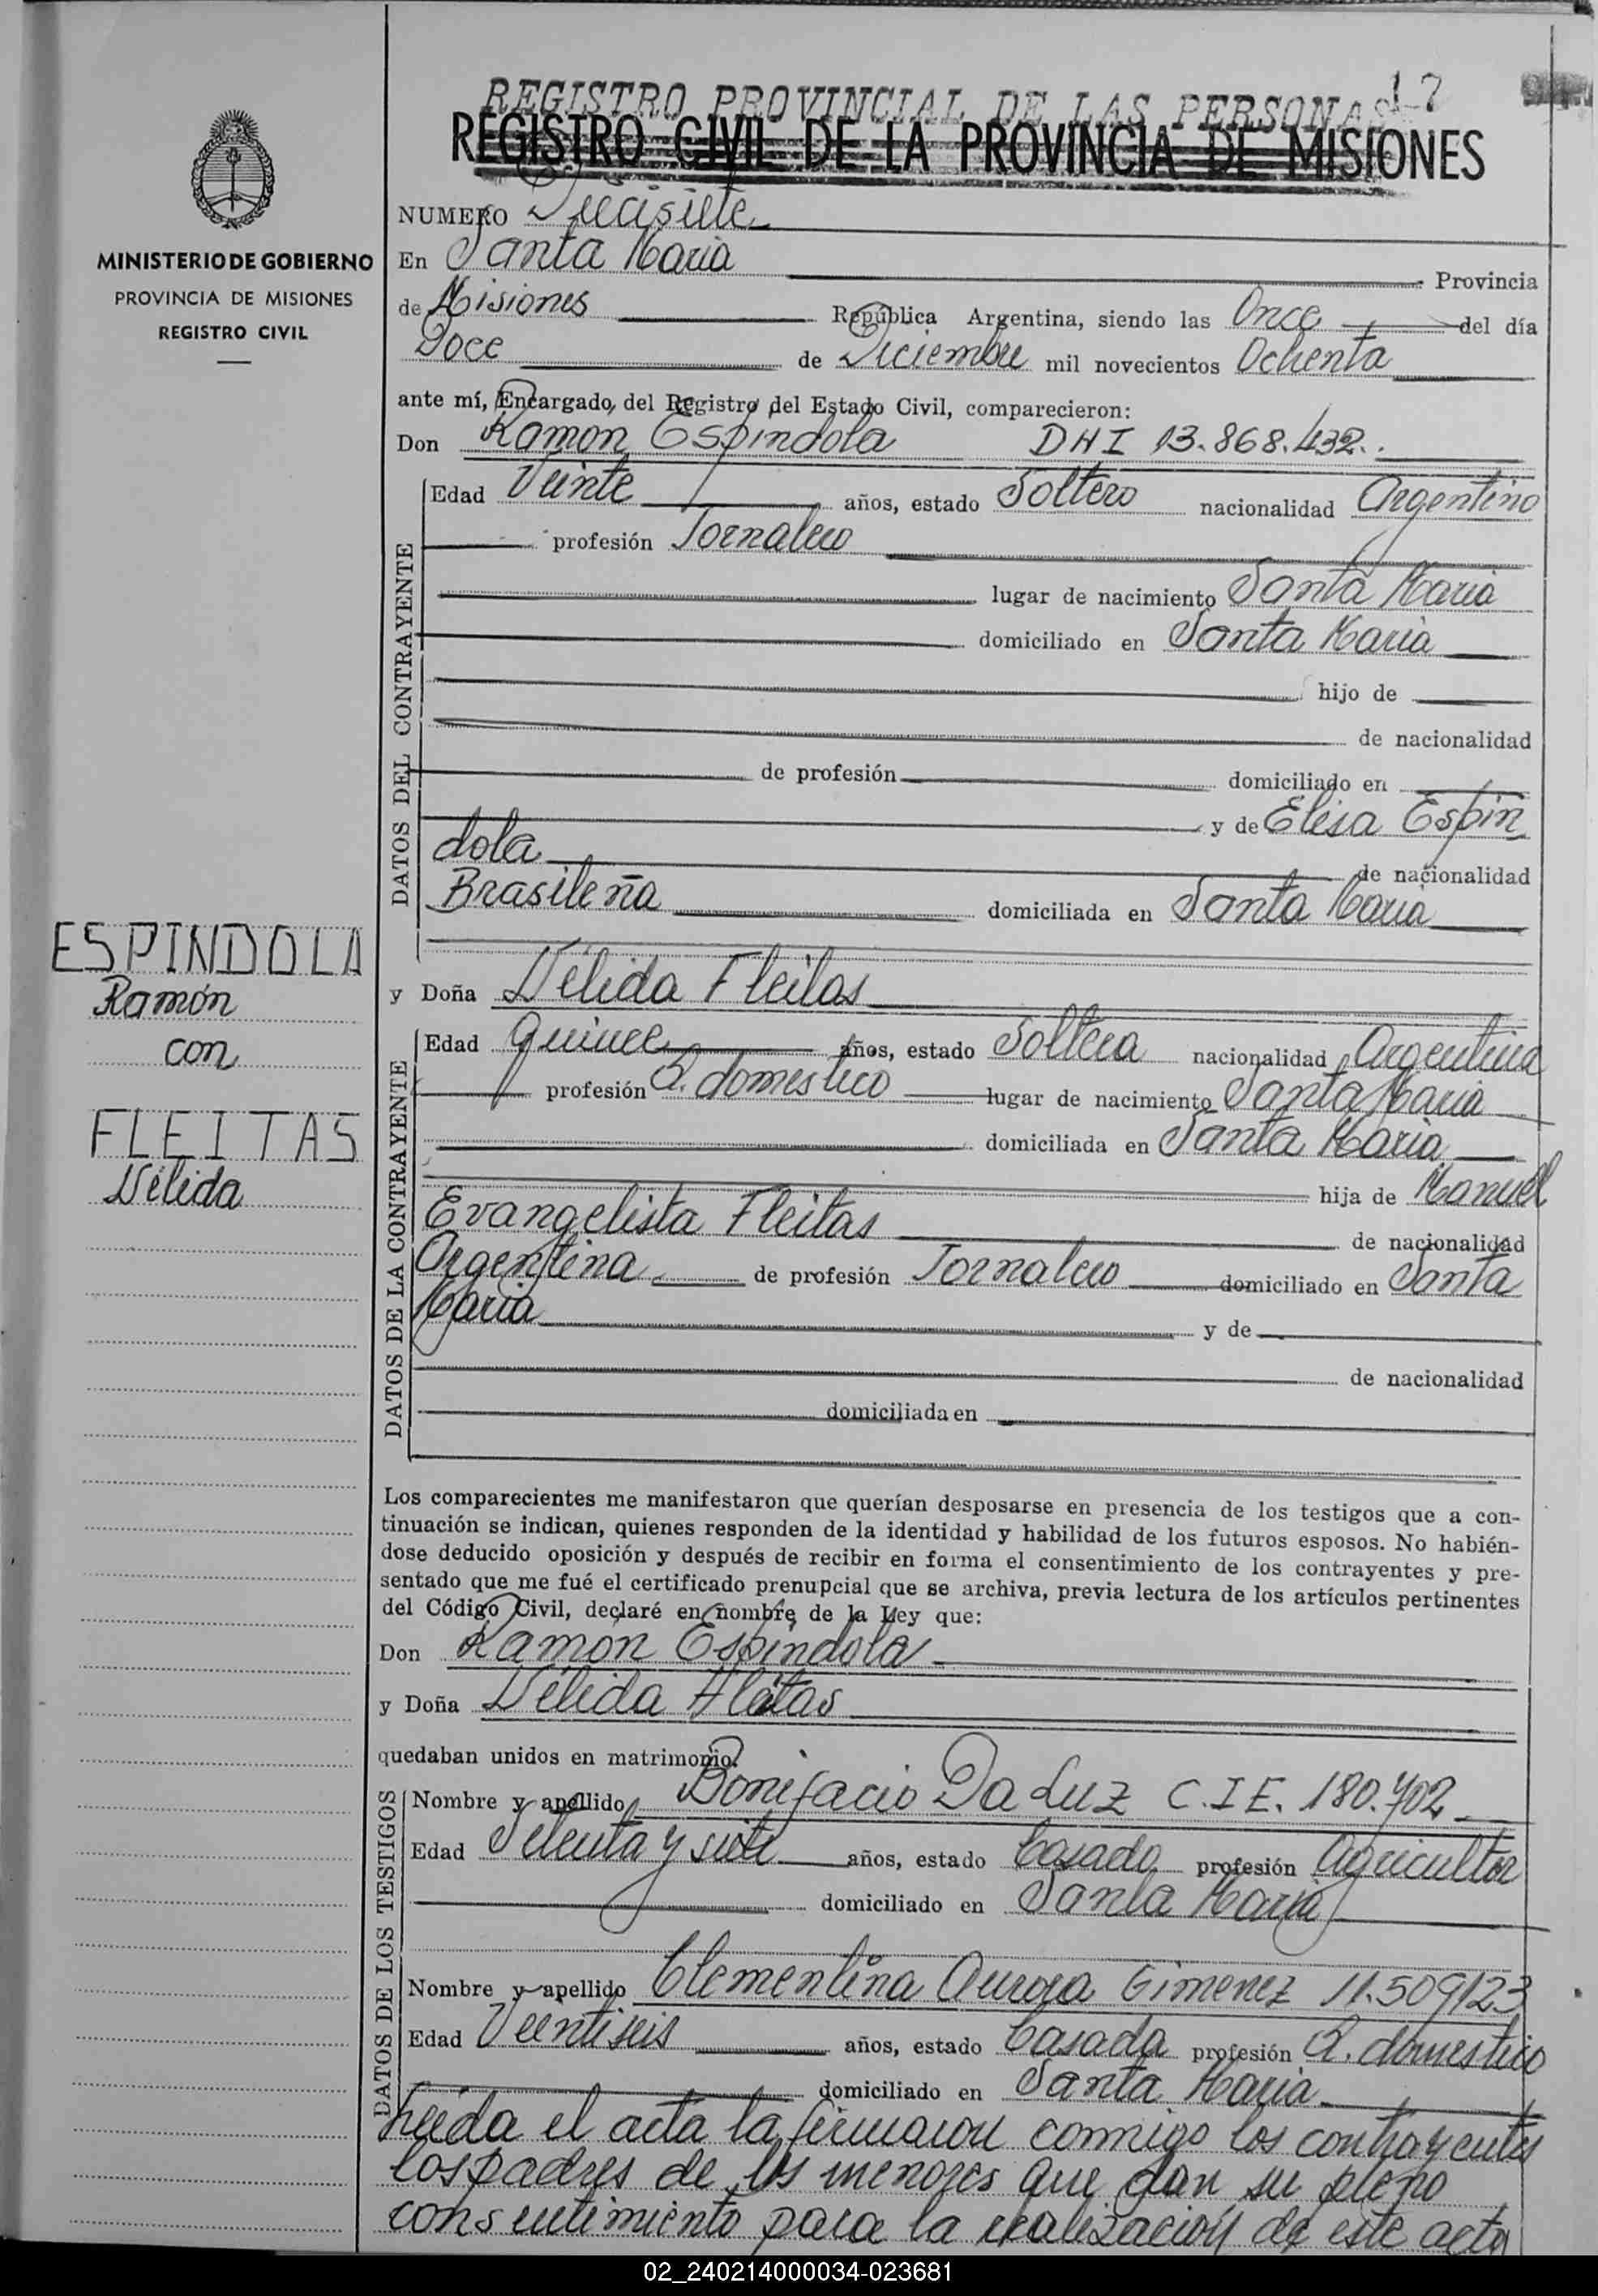 17
REGISTRO PROVINCIAL DE LAS PERSONAS
REGISTRO CIVIL DE LA PROVINCIA DE MISIONES
MINISTERIO DE GOBIERNO
PROVINCIA DE MISIONES
REGISTRO CIVIL
NUMERO Diecisiete
En Santa Maria Provincia
de Misiones República Argentina, siendo las Once del día
Doce de Diciembre mil novecientos Ochenta
ante mí, Encargado, del Registro del Estado Civil, comparecieron:
Don Ramón Espindola DNI 13.868.432.
DATOS DEL CONTRAYENTE
Edad Veinte años, estado Soltero nacionalidad Argentino
profesión Jornalero
lugar de nacimiento Santa Maria
domiciliado en Santa Maria
hijo de
de nacionalidad
de profesión domiciliado en
y de Elisa Espin
dola de nacionalidad
Brasileña domiciliada en Santa Maria
ESPINDOLA
Ramón
con
FLEITAS
Nélida
y Doña Nélida Fleitas
DATOS DE LA CONTRAYENTE
Edad quince años, estado Soltera nacionalidad Argentina
profesión Q. domestico lugar de nacimiento Santa Maria
domiciliada en Santa Maria
hija de Manuel
Evangelista Fleitas de nacionalidad
Argentina de profesión Jornalero domiciliado en Santa
Maria y de
de nacionalidad
domiciliada en
Los comparecientes me manifestaron que querían desposarse en presencia de los testigos que a con-
tinuación se indican, quienes responden de la identidad y habilidad de los futuros esposos. No habién-
dose deducido oposición y después de recibir en forma el consentimiento de los contrayentes y pre-
sentado que me fué el certificado prenupcial que se archiva, previa lectura de los artículos pertinentes
del Código Civil, declaré en nombre de la Ley que:
Don Ramón Espindola
y Doña Nélida Fleitas
quedaban unidos en matrimonio.
DATOS DE LOS TESTIGOS
Nombre y apellido Bonifacio Da Luz C.I.E. 180.702
Edad Setenta y siete años, estado Casado profesión Agricultor
domiciliado en Santa Maria
Nombre y apellido Clementina Aurora Gimenez 11.509123
Edad Veintiseis años, estado Casada profesión Q. domestico
domiciliado en Santa Maria
Leida el acta la firmaron conmigo los contrayentes
los padres de los menores que dan su pleno
consentimiento para la realización de este acto
02_240214000034-023681